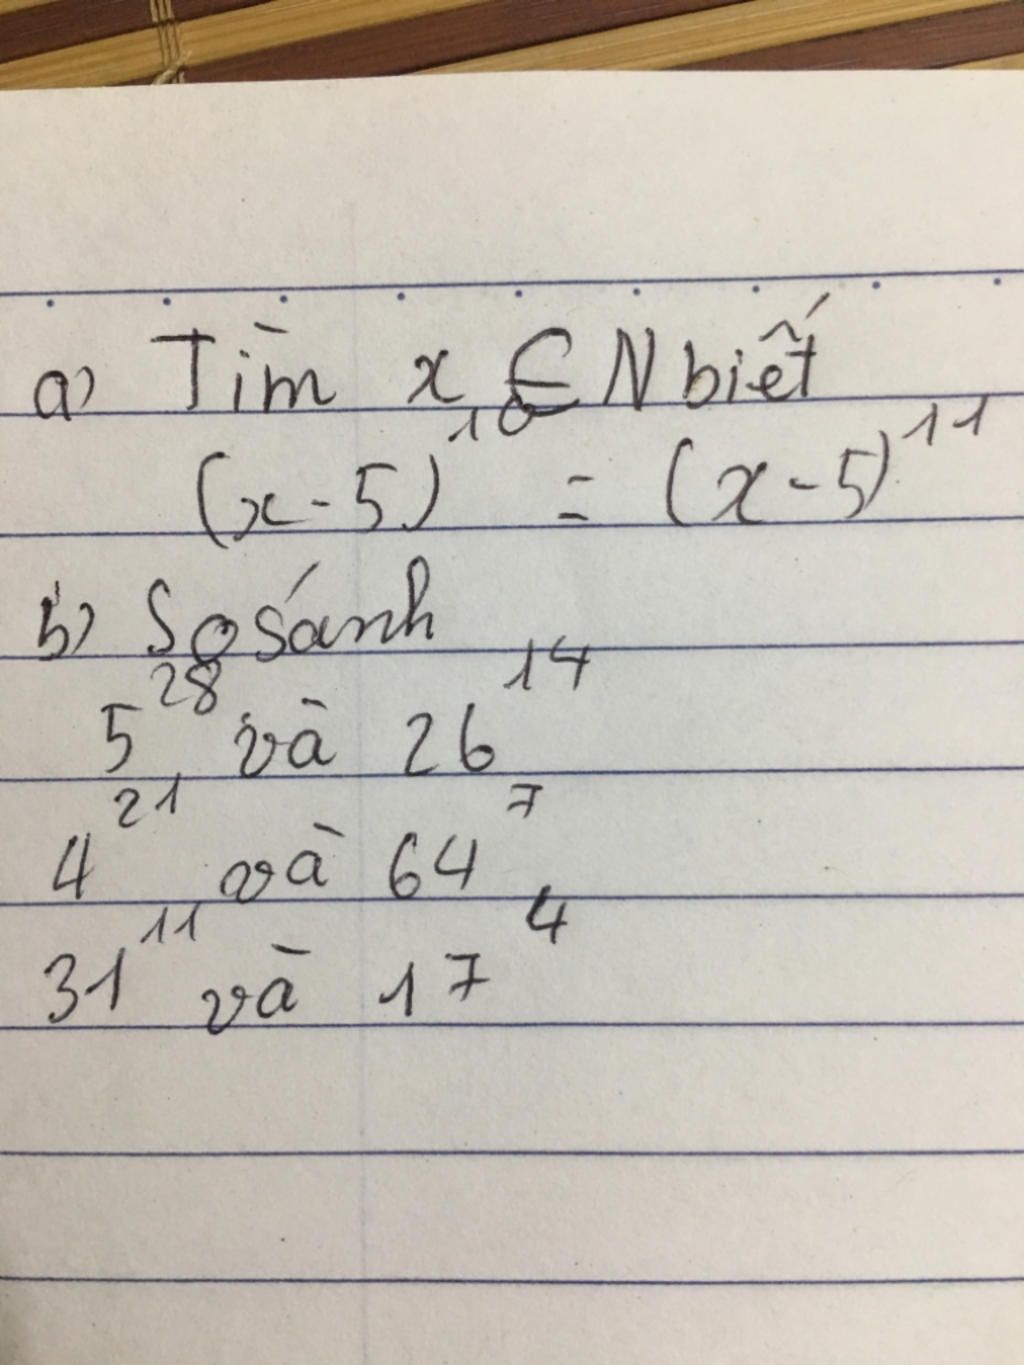 a) Tìm x ∈ N biết
(x-5)¹⁰ = (x-5)¹¹
b) So sánh
5²⁸ và 26¹⁴
4²¹ và 64⁷
31¹¹ và 17⁴